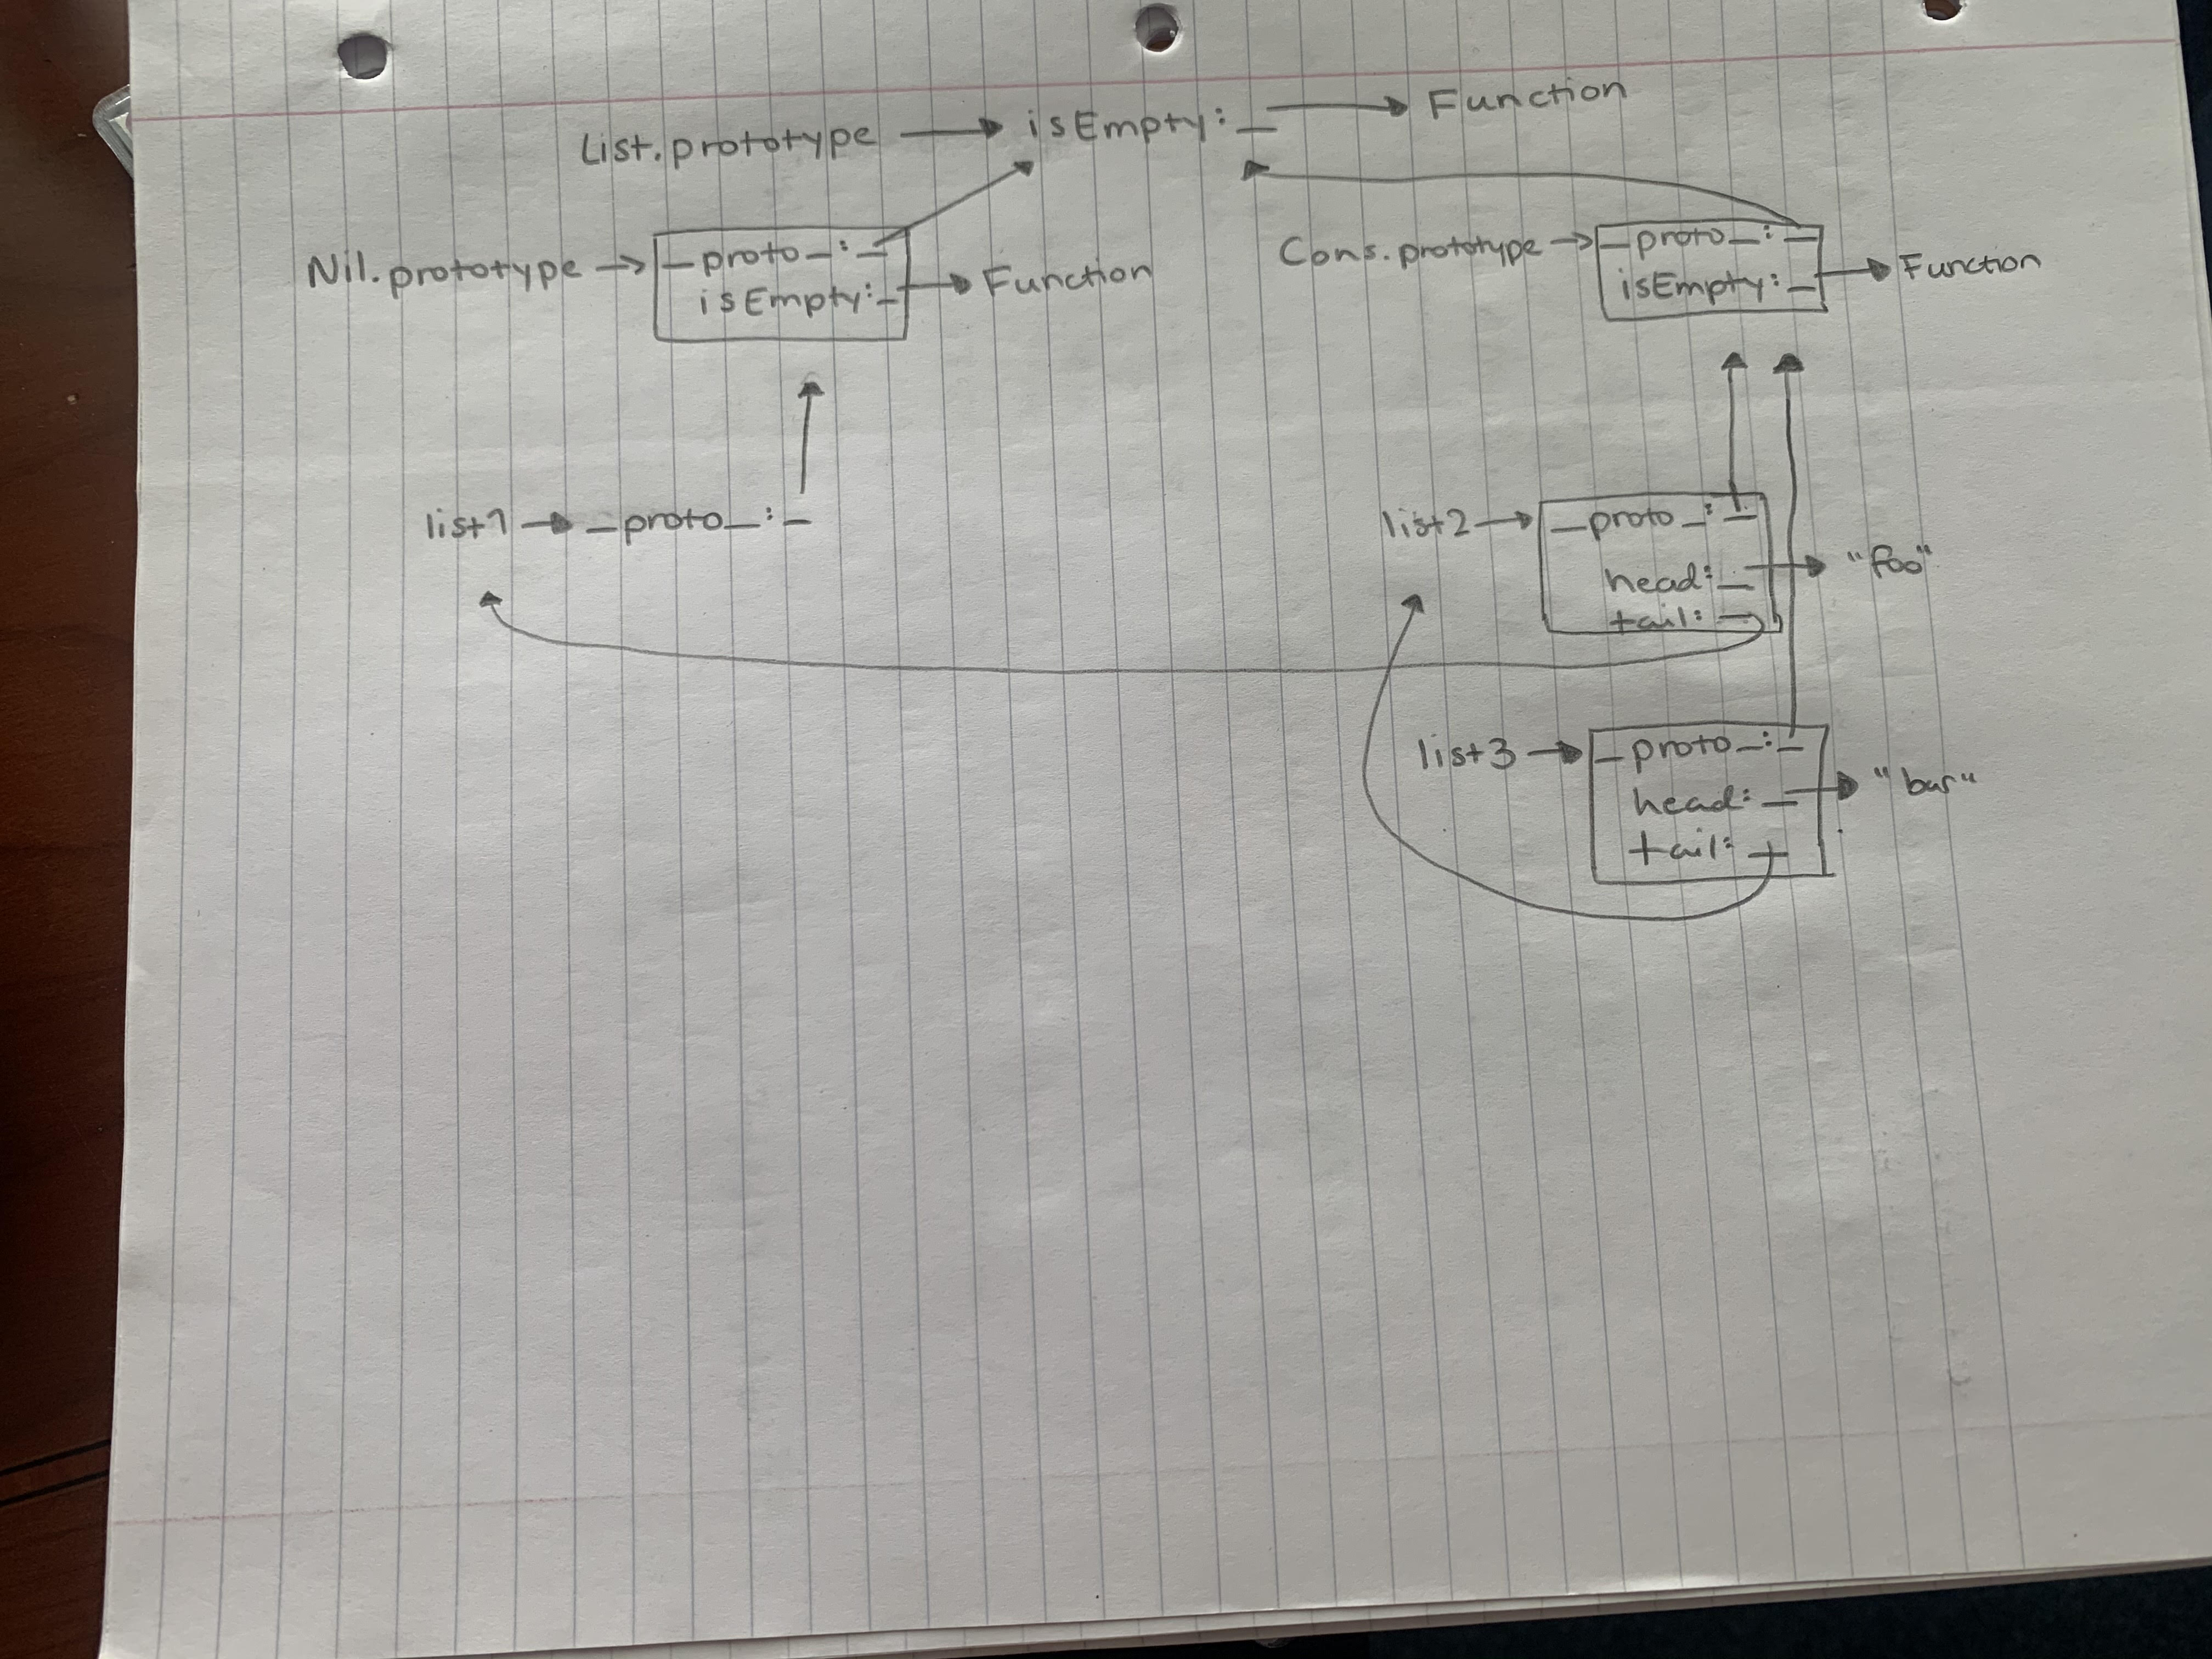 List.prototype → isEmpty:_ → Function
Nil.prototype → _proto_:_
isEmpty:_ → Function
Cons.prototype → _proto_:_
isEmpty:_ → Function
list1 → _proto_:_
list2 → _proto_:_
head:_ → "foo"
tail:_
list3 → _proto_:_
head:_ → "bar"
tail:_